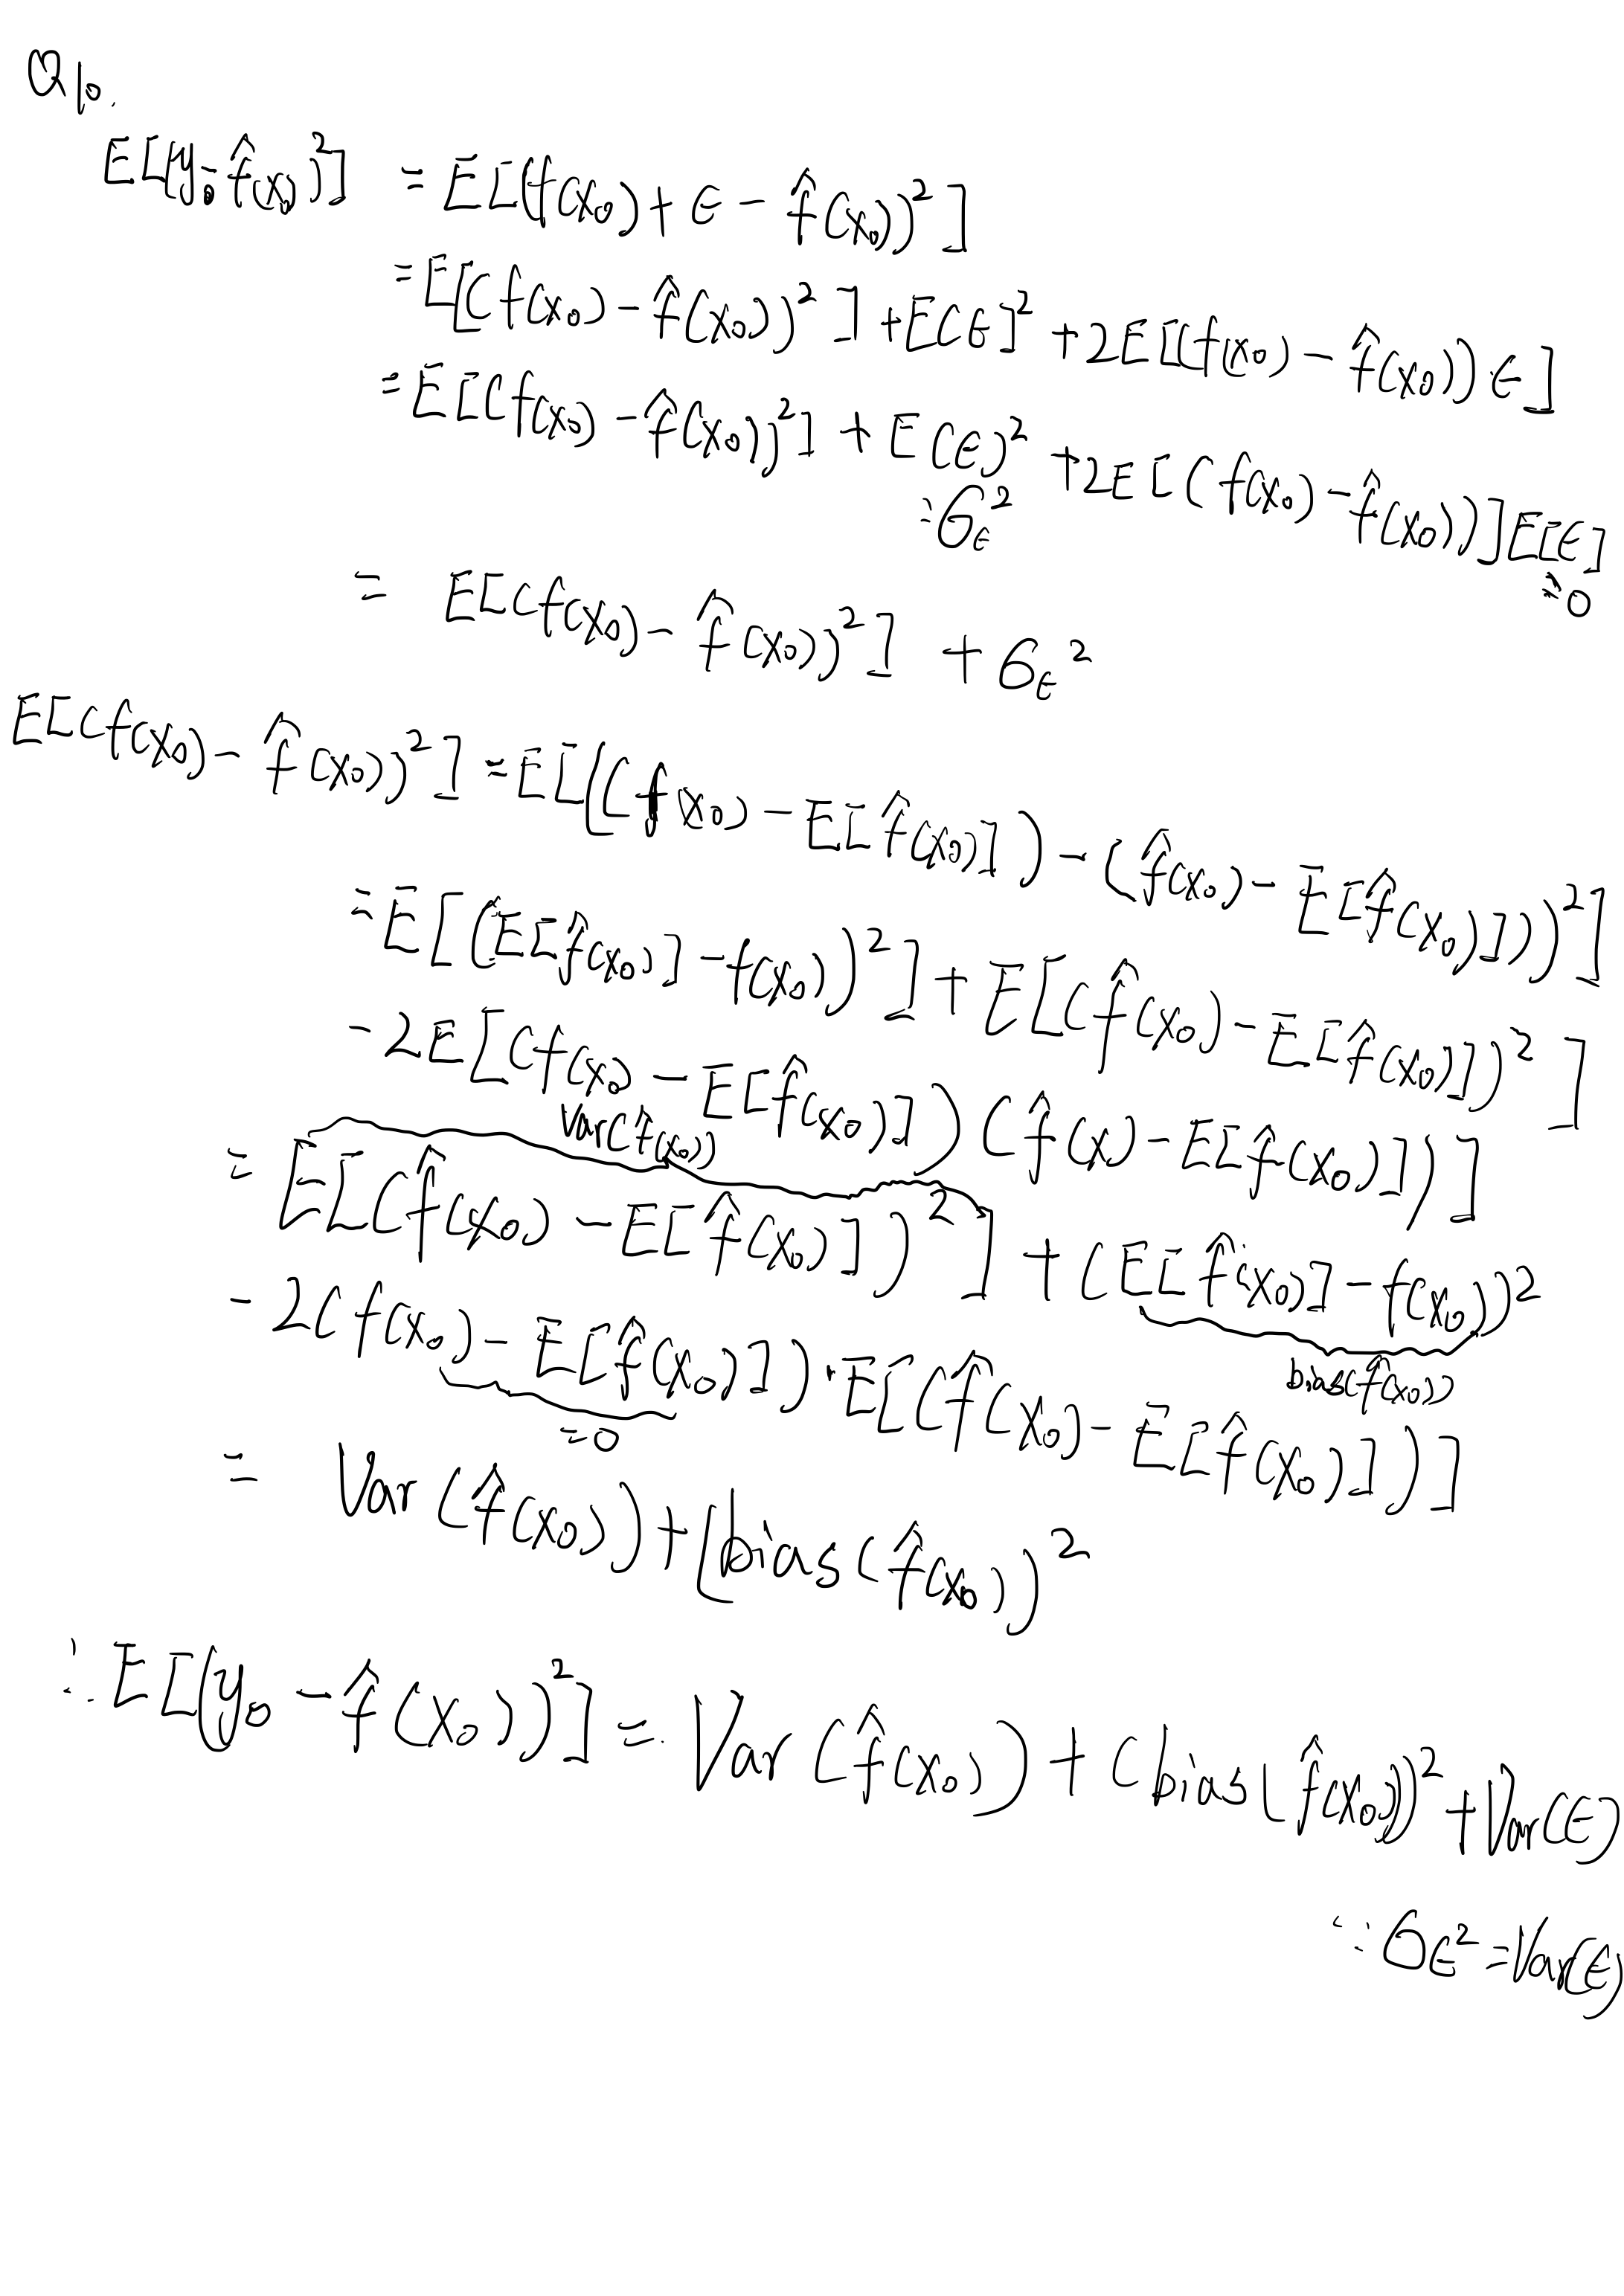 Q1.
E[(y₀-f̂(x₀))²] = E[(f(x₀)+ϵ-f̂(x₀))²]
=E[(f(x₀)-f̂(x₀))²]+E[ϵ]²+2E[(f(x₀)-f̂(x₀))·ϵ]
=E[(f(x₀)-f̂(x₀))²]+E(ϵ)²+2E[(f(x₀)-f̂(x₀))]E[ϵ]
=σ_ϵ²
=0
= E[(f(x₀)-f̂(x₀))²] + σ_ϵ²
E[(f(x₀)-f̂(x₀))²] =E[((f(x₀)-E[f̂(x₀)])-(f̂(x₀)-E[f̂(x₀)]))²]
=E[(E[f̂(x₀)]-f(x₀))²]+E[(f̂(x₀)-E[f̂(x₀)])²]
-2E[(f(x₀)-E[f̂(x₀)])(f̂(x)-E[f̂(x₀)])]
Var(f̂(x₀))
=E[(f̂(x₀)-E[f̂(x₀)])²]+(E[f̂(x₀)]-f(x₀))²
bias(f̂(x₀))
-2(f(x₀)-E[f̂(x₀)])·E[(f̂(x₀)-E[f̂(x₀)])]
=0
= Var(f̂(x₀))+(bias(f̂(x₀))²
∴E[(y₀-f̂(x₀))²]=Var(f̂(x₀))+(bias(f̂(x₀))²+Var(ϵ)
∵σ_ϵ²=Var(ϵ)